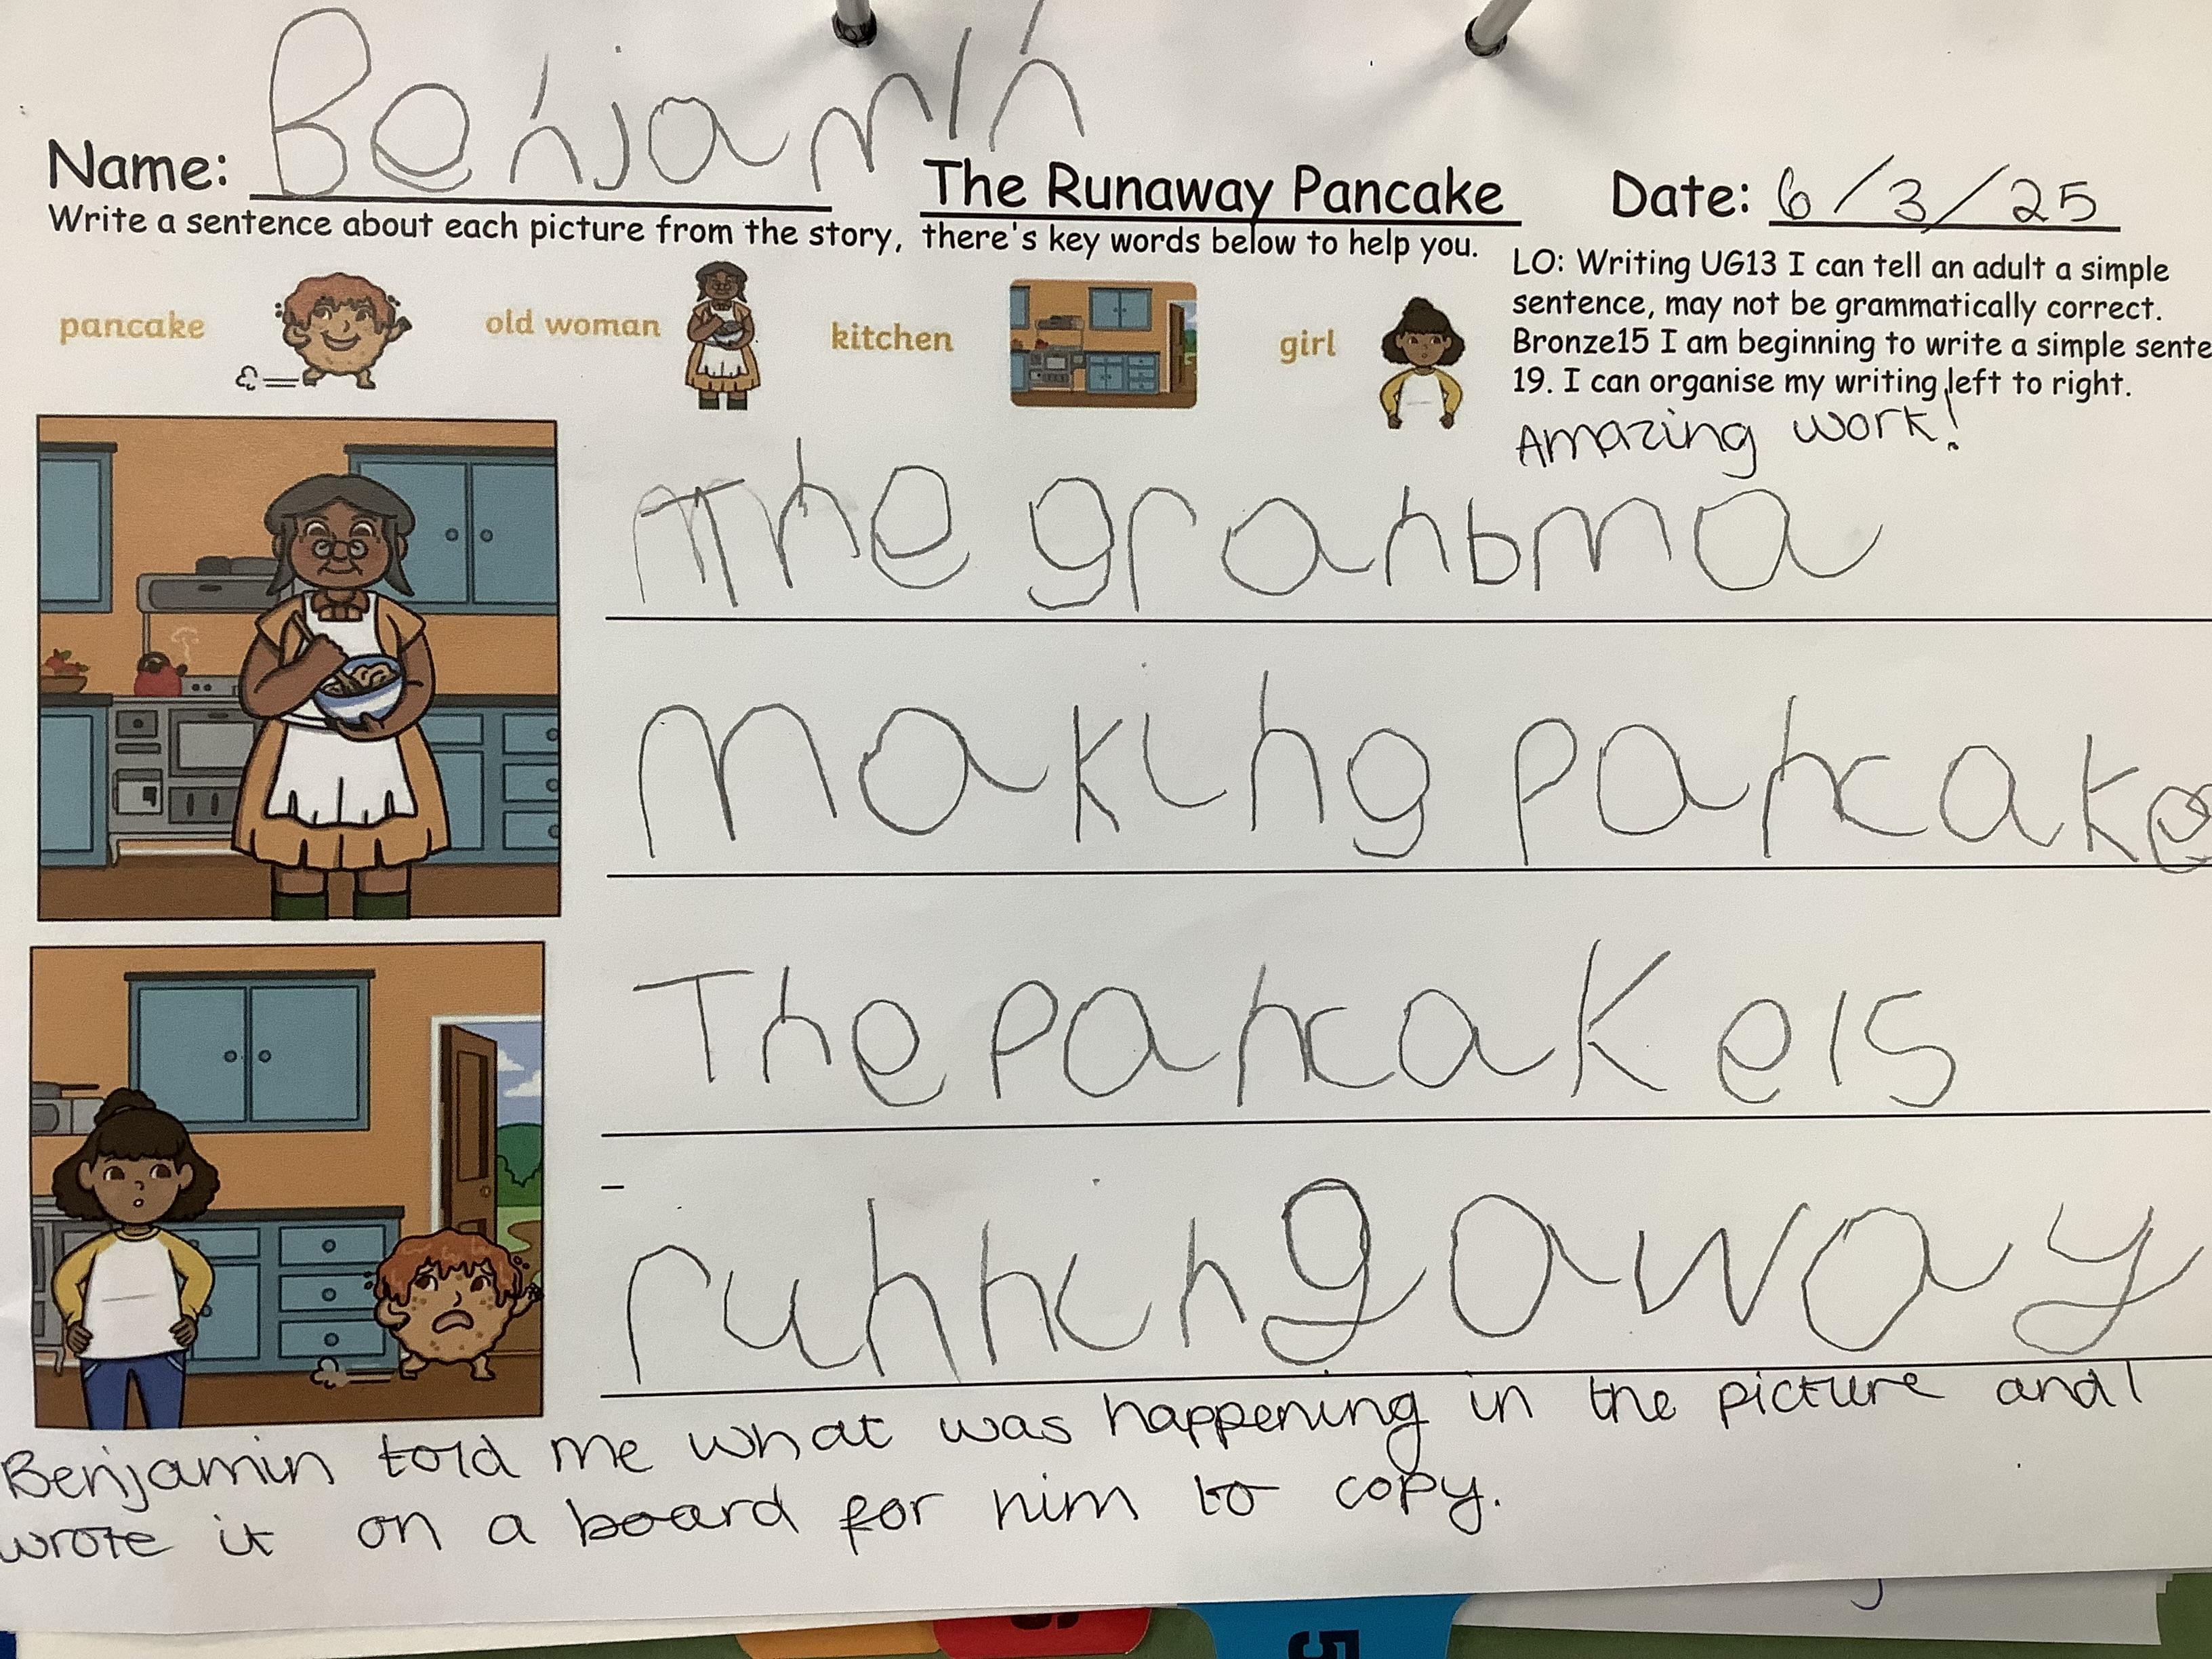 Name: Benjamin
The Runaway Pancake
Date: 6/3/25
Write a sentence about each picture from the story, there's key words below to help you.
LO: Writing UG13 I can tell an adult a simple
sentence, may not be grammatically correct.
Bronze15 I am beginning to write a simple sente
19. I can organise my writing left to right.
pancake old woman kitchen girl
Amazing work!
The granbma
making pancake
The pancake is
running away
Benjamin told me what was happening in the picture and I
wrote it on a board for him to copy.
5